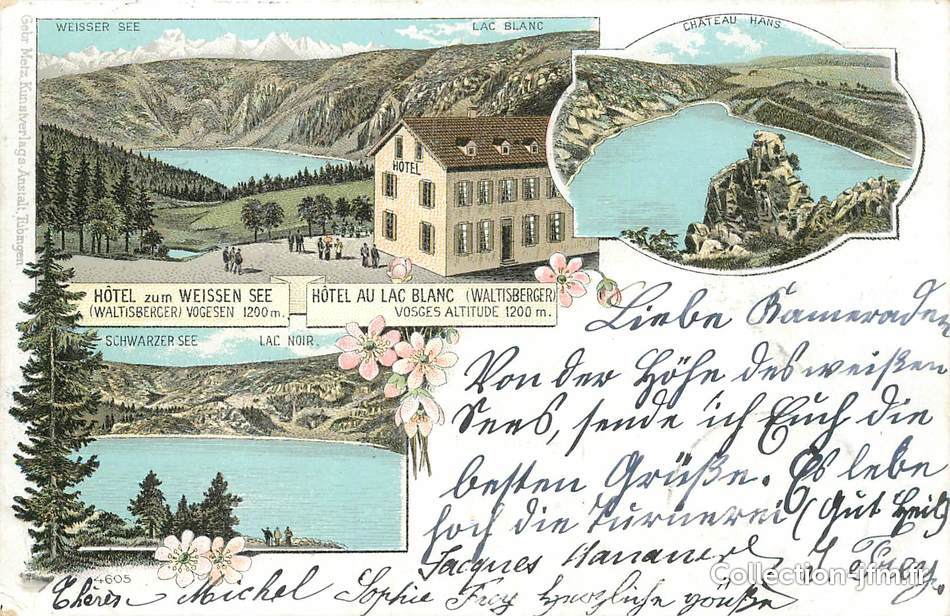 WEISSER SEE LAC BLANC
CHÂTEAU HANS
Gebr Metz, Kunstverlags-Anstalt, Tübingen
HOTEL
HÔTEL zum WEISSEN SEE
(WALTISBERGER) VOGESEN 1200 m.
HÔTEL AU LAC BLANC (WALTISBERGER)
VOSGES ALTITUDE 1200 m.
SCHWARZER SEE LAC NOIR.
Liebe Kameraden
Von der Höhe des weißen
Sees, sende ich Euch die
besten Grüße. Es lebe
hoch die Turnerei (Gut Heil)
Jacques
Michel Sophie Frey Herzliche grüße
4605
Collection-jfm.fr